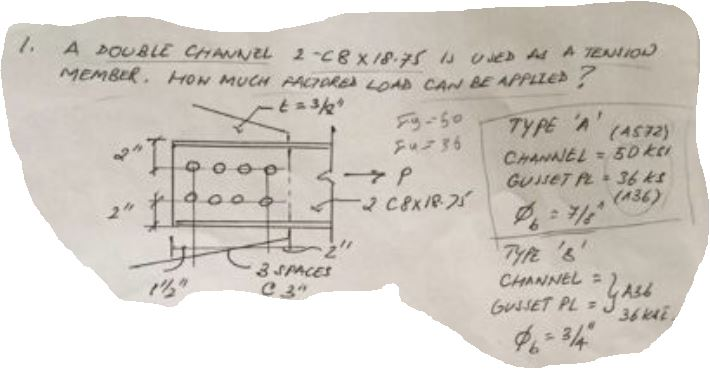 1. A DOUBLE CHANNEL 2-C8X18.75 IS USED AS A TENSION
MEMBER. HOW MUCH FACTORED LOAD CAN BE APPLIED?
t = 3/8"
Fy=50
Fu=36
TYPE 'A' (A572)
CHANNEL = 50 KSI
GUSSET PL = 36 KS
(A36)
ϕb = 7/8"
2"
P
2 C8X18.75
2"
2"
3 SPACES
C 3"
1 1/2"
TYPE 'B'
CHANNEL =
GUSSET PL = } A36
36 KSI.
ϕb = 3/4"